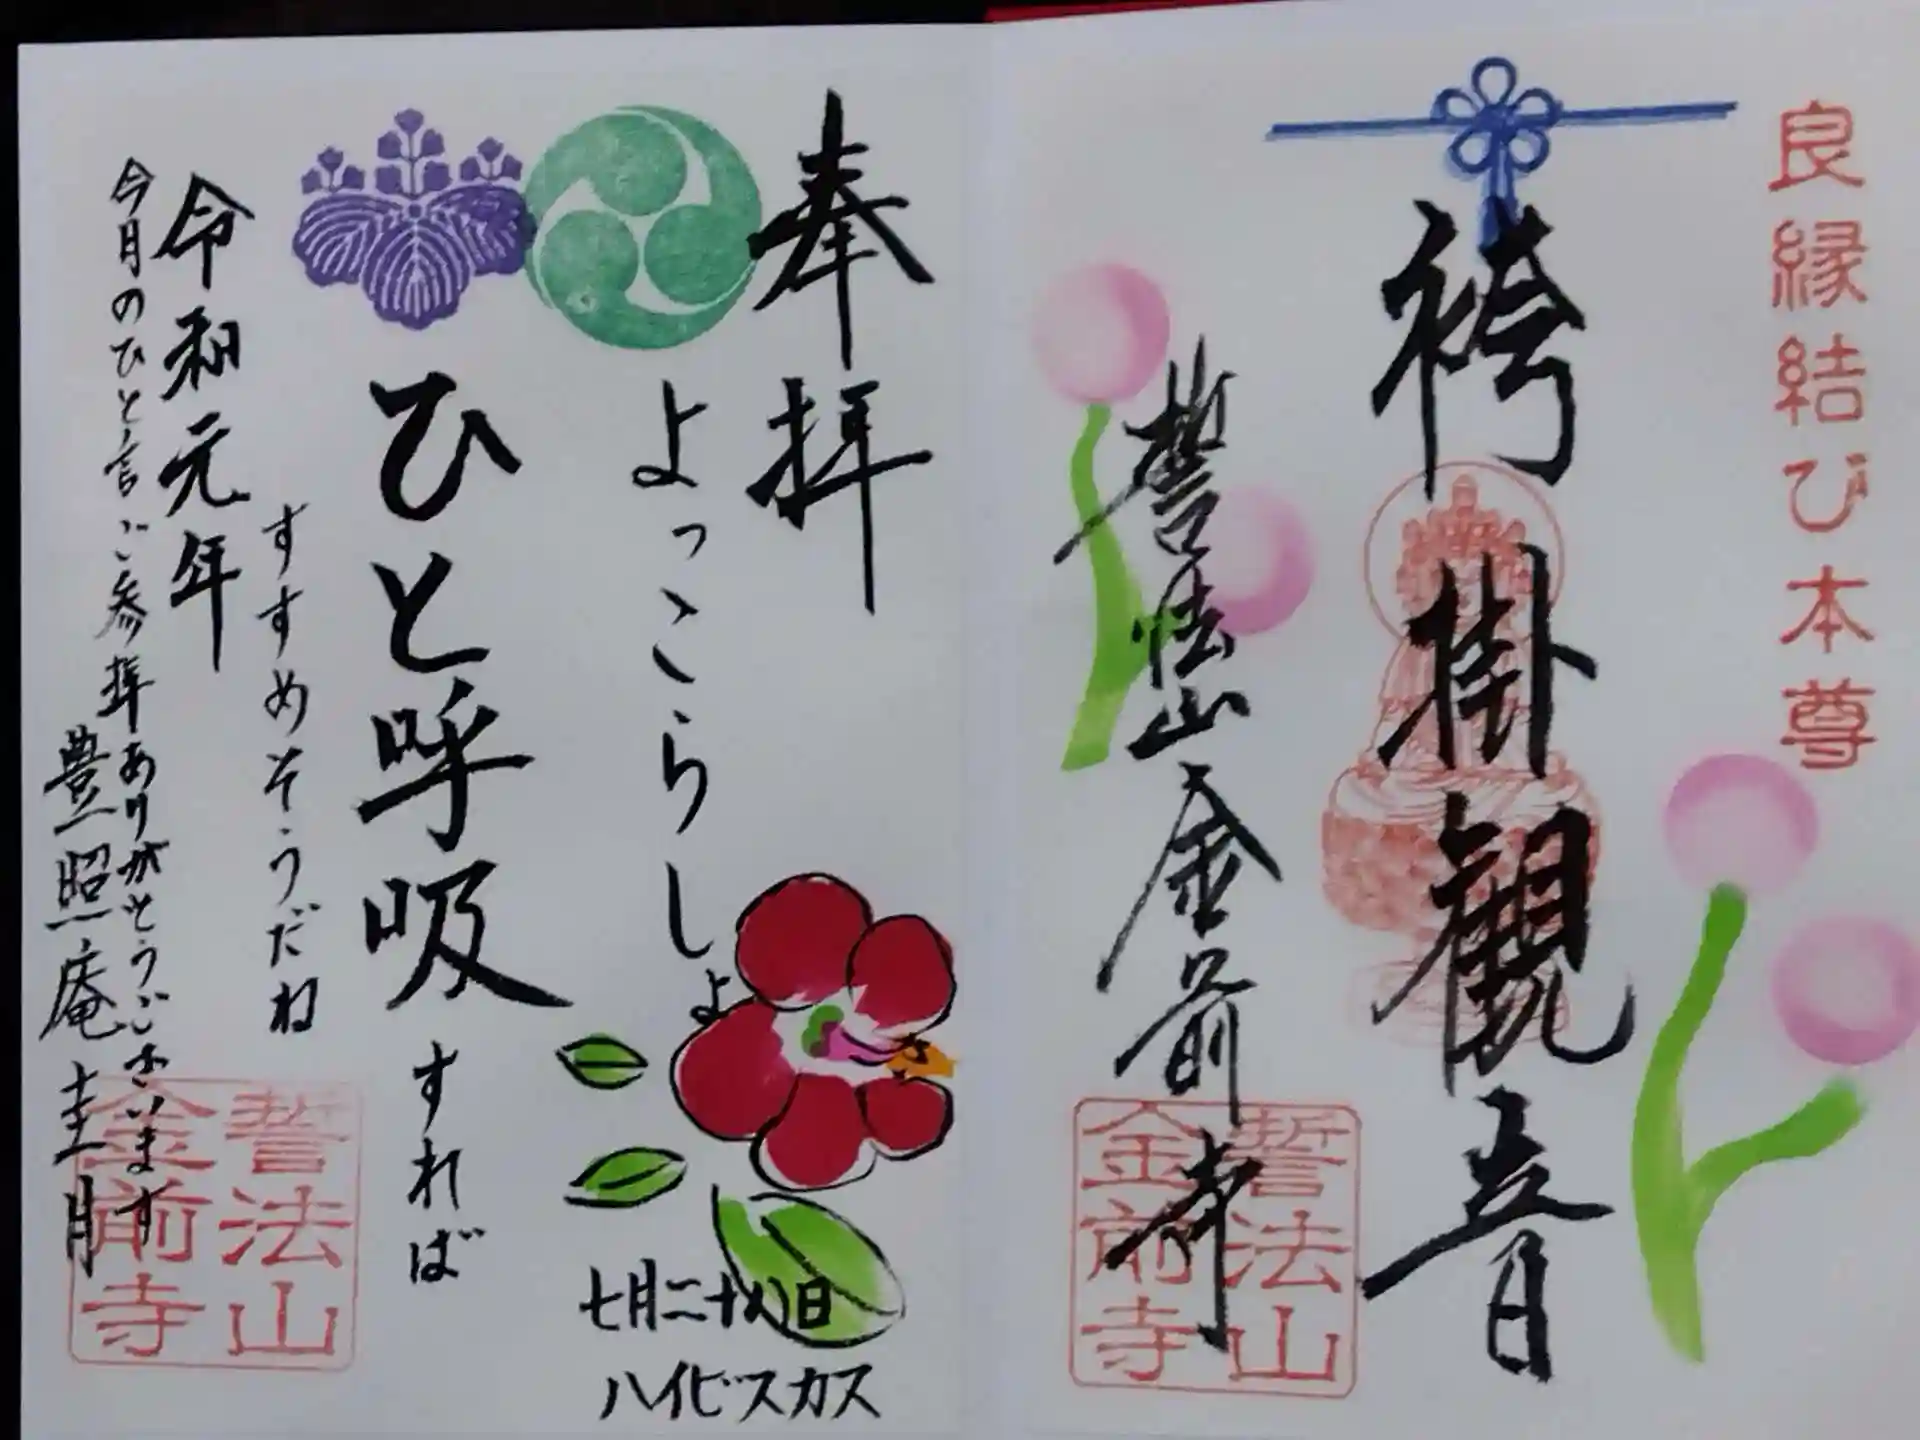 良縁結び本尊
袴掛観音
誓法山金前寺
誓法山
金前寺
奉拝
よっこらしょ
ひと呼吸すれば
すすめそうだね
令和元年
七月二十八日
ハイビスカス
今月のひと言ご参拝ありがとうございます
豊照庵圭月
誓法山
金前寺